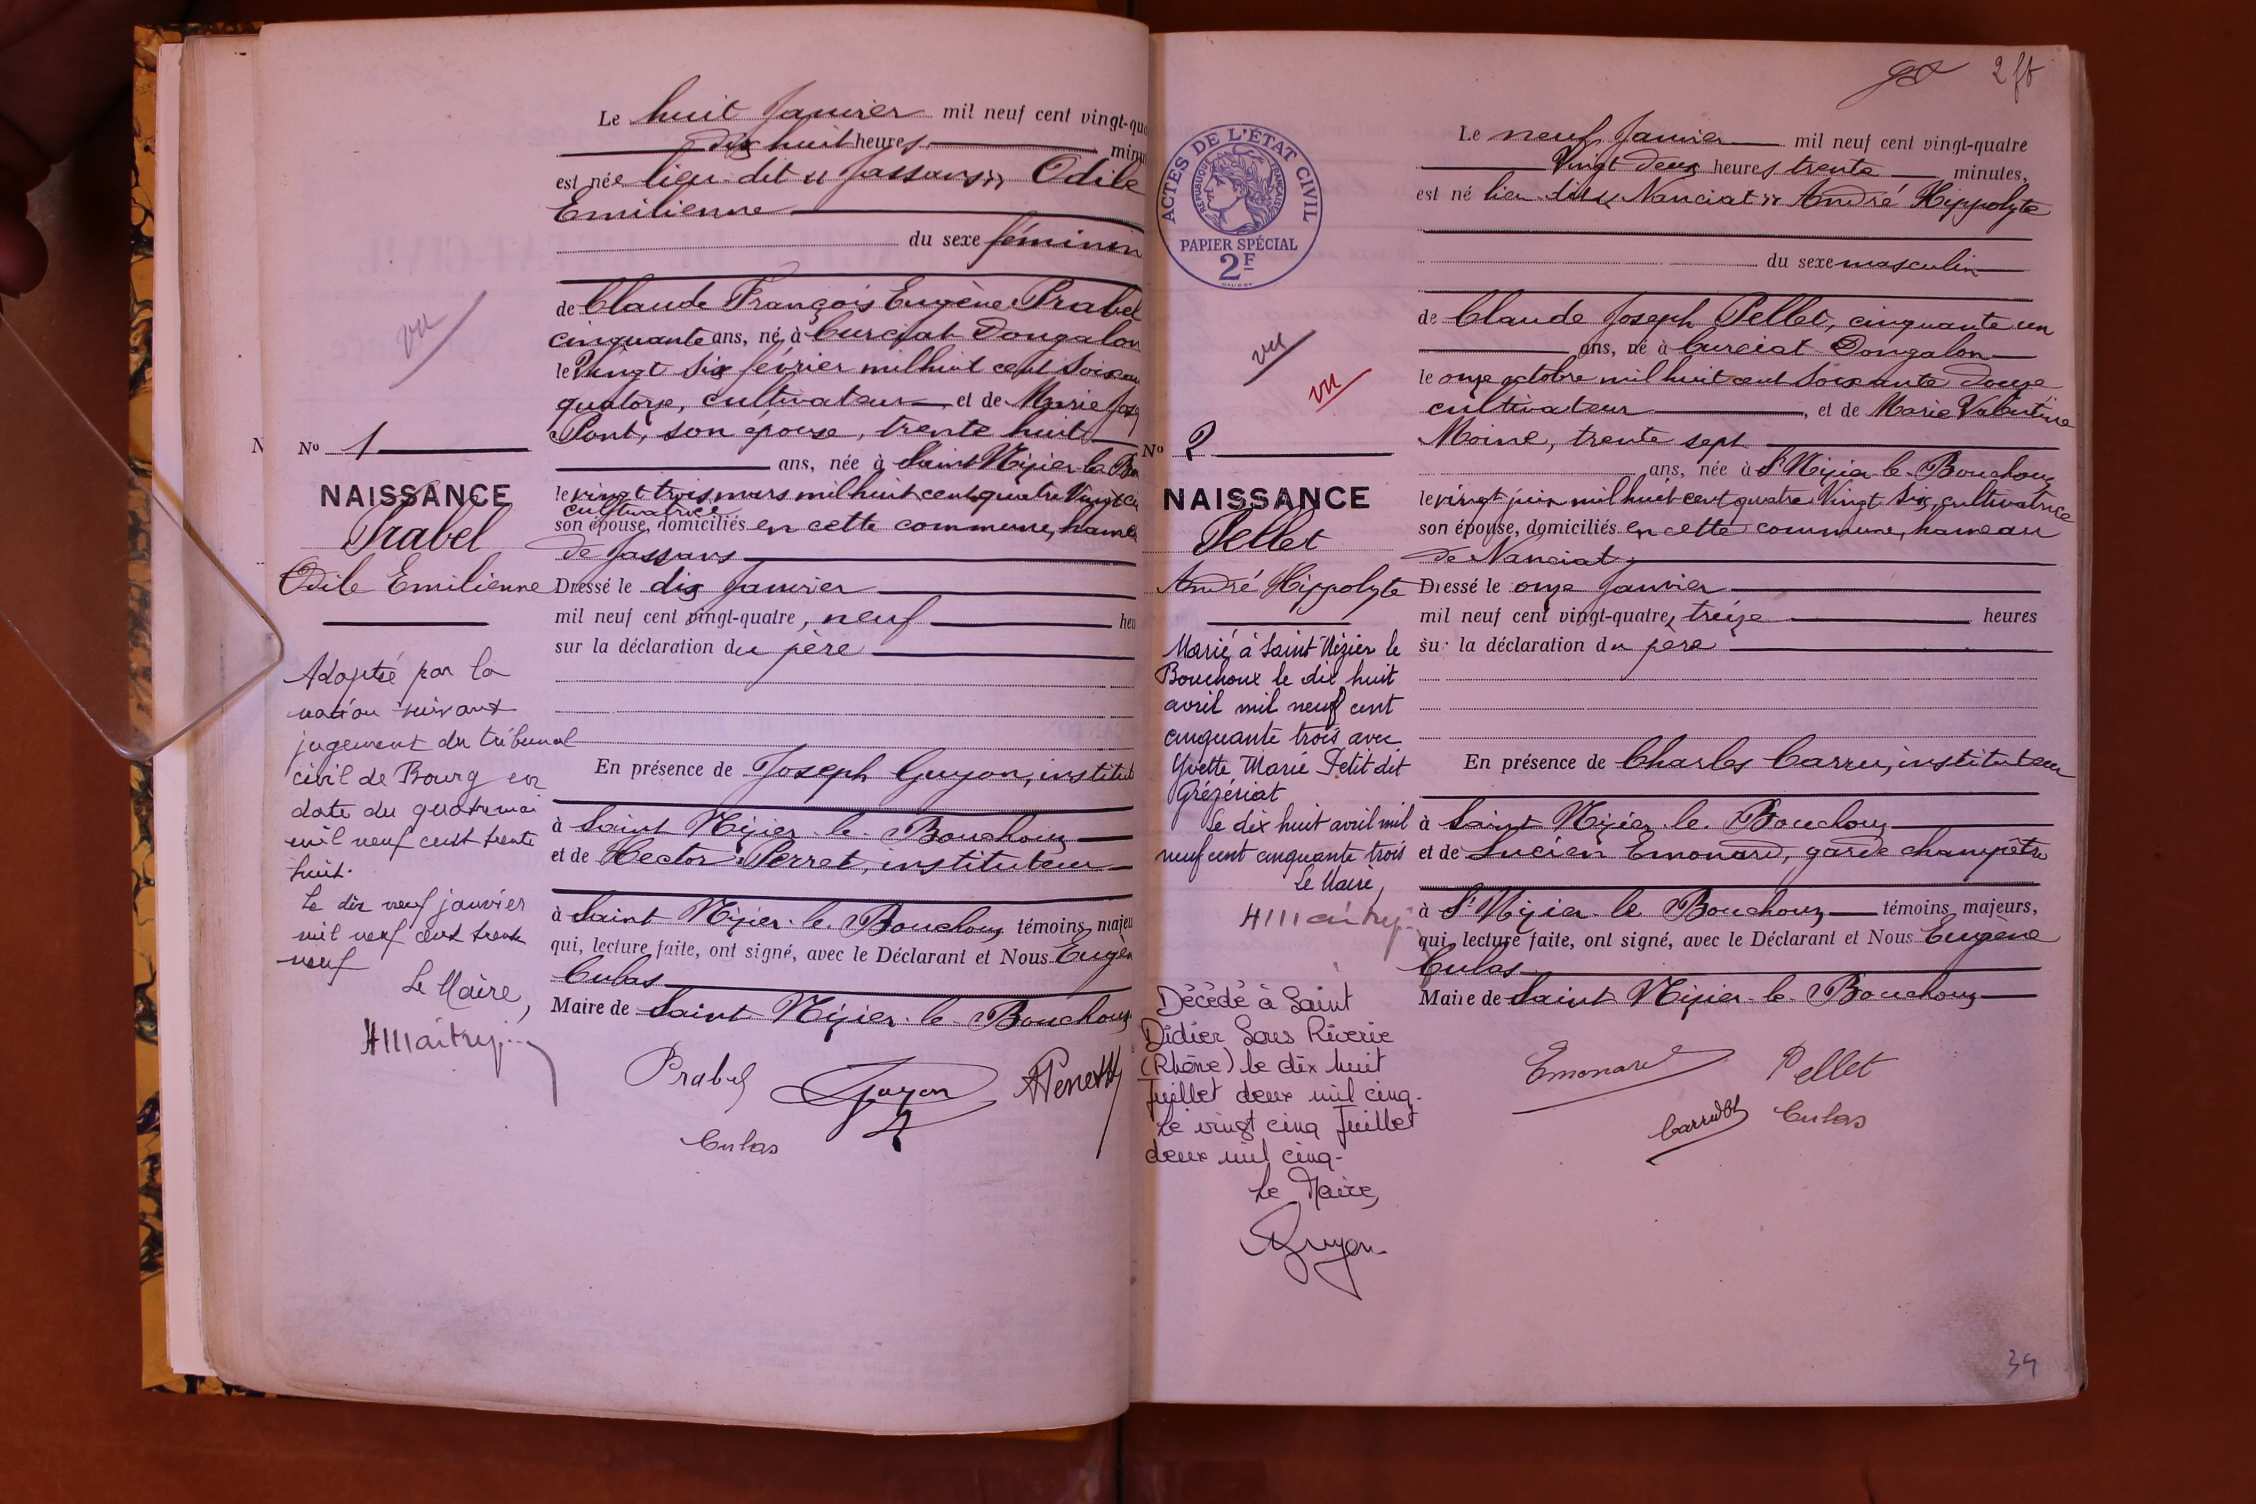 Le huit Janvier mil neuf cent vingt-qua
dix huit heures minu
est née lieu-dit « Jassans » Odile
Emilienne
du sexe féminin
de Claude François Eugène Prabel
cinquante ans, né à Curciat Dongalon
le Vingt six février mil huit cent soixan
quatorze, cultivateur, et de Marie Jos
Pont, son épouse, trente huit
ans, née à Saint Nizier-le-Bou
le vingt trois mars mil huit cent quatre Vingt
cultivatrice
son épouse, domiciliés en cette commune, hame
de Jassans
Dressé le dix Janvier
mil neuf cent vingt-quatre, neuf heu
sur la déclaration du père
En présence de Joseph Guyon, institut
à Saint Nizier-le-Bouchoux
et de Hector Perret, instituteur
à Saint Nizier-le-Bouchoux témoins majeu
qui, lecture faite, ont signé, avec le Déclarant et Nous Eugèn
Culas
Maire de Saint Nizier-le-Bouchoux
Prabel Guyon
Culas
vu
N
No 1
NAISSANCE
Prabel
Odile Emilienne
Adoptée par la
nation suivant
jugement du tribunal
civil de Bourg en
date du quatre mai
mil neuf cent trente
huit.
Le dix neuf janvier
mil neuf cent trente
neuf
Le Maire,
ACTES DE L'ÉTAT CIVIL
RÉPUBLIQUE FRANÇAISE
PAPIER SPÉCIAL
2F
vu
vu
No 2
NAISSANCE
Pellet
André Hippolyte
Marié à Saint-Nizier le
Bouchoux le dix huit
avril mil neuf cent
cinquante trois avec
Yvette Marie Petit dit
Grézériat
Le dix huit avril mil
neuf cent cinquante trois
Le Maire,
Décédé à Saint
Didier Sous Riverie
(Rhône) le dix huit
Juillet deux mil cinq.
Le vingt cinq Juillet
deux mil cinq.
Le Maire,
Guyon
2
Le neuf Janvier mil neuf cent vingt-quatre
Vingt deux heures trente minutes,
est né lieu dit « Nanciat » André Hippolyte
du sexe masculin
de Claude Joseph Pellet, cinquante un
ans, né à Curciat Dongalon
le onze octobre mil huit cent soixante douze
cultivateur, et de Marie Valentine
Moine, trente sept
ans, née à St Nizier-le-Bouchoux
le vingt juin mil huit cent quatre Vingt six, cultivatrice
son épouse, domiciliés en cette commune, hameau
de Nanciat
Dressé le onze Janvier
mil neuf cent vingt-quatre, treize heures
su la déclaration du père
En présence de Charles Carru, instituteur
à Saint Nizier-le-Bouchoux
et de Lucien Emonard, garde champêtre
à St Nizier-le-Bouchoux témoins majeurs,
qui, lecture faite, ont signé, avec le Déclarant et Nous Eugène
Culas
Maire de Saint Nizier-le-Bouchoux
Emonard Pellet
Culas
34